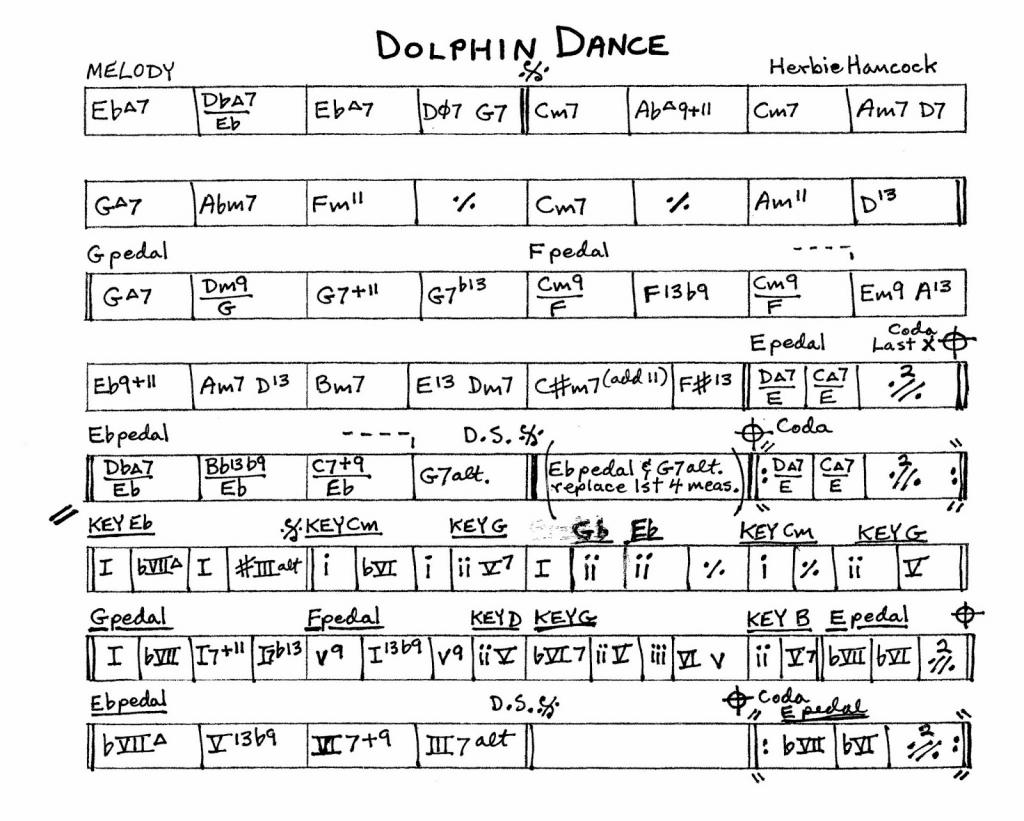 DOLPHIN DANCE
MELODY Herbie Hancock
EbΔ7 DbΔ7/Eb EbΔ7 DØ7 G7 Cm7 AbΔ9+11 Cm7 Am7 D7
GΔ7 Abm7 Fm11 ٪ Cm7 ٪ Am11 D13
G pedal F pedal ----,
GΔ7 Dm9/G G7+11 G7b13 Cm9/F F13b9 Cm9/F Em9 A13
E pedal Coda Last X
Eb9+11 Am7 D13 Bm7 E13 Dm7 C#m7(add 11) F#13 DΔ7/E CΔ7/E 2
Eb pedal ----, D.S. Coda
DbΔ7/Eb Bb13b9/Eb C7+9/Eb G7alt. (Eb pedal & G7alt. replace 1st 4 meas.) DΔ7/E CΔ7/E 2
KEY Eb KEY Cm KEY G Gb Eb KEY Cm KEY G
I bVIIΔ I #IIIalt i bVI i ii V7 I ii ii ٪ i ٪ ii V
G pedal F pedal KEY D KEY G KEY B E pedal
I bVII I7+11 I7b13 v9 I13b9 v9 ii V bVI7 ii V iii VI v ii V7 bVII bVI 2
Eb pedal D.S. Coda E pedal
bVIIΔ V13b9 VI7+9 III7alt bVII bVI 2